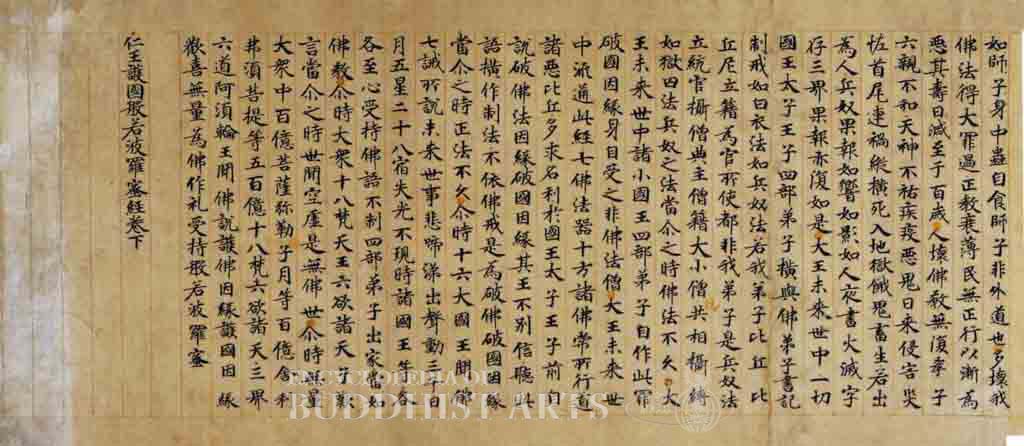 如師子身中蟲自食師子非外道也多壞我
佛法得大罪過正教衰薄民無正行以漸為
惡其壽日減至于百歲人壞佛教無復孝子
六親不和天神不祐疾疫惡鬼日來侵害災
恠首尾連禍縱橫死入地獄餓鬼畜生若出
為人兵奴果報如響如影如人夜書火滅字
存三界果報亦復如是大王未來世中一切
國王太子王子四部弟子橫與佛弟子書記
制戒如白衣法如兵奴法若我弟子比丘比
丘尼立籍為官所使都非我弟子是兵奴法
立統官攝僧典主僧籍大小僧共相攝縛
如獄囚法兵奴之法當尒之時佛法不久大
王未來世中諸小國王四部弟子自作此罪
破國因緣身自受之非佛法僧大王未來世
中流通此經七佛法器十方諸佛常所行道
諸惡比丘多求名利於國王太子王子前自
說破佛法因緣破國因緣其王不別信聽此
語橫作制法不依佛戒是為破佛破國因緣
當尒之時正法不久尒時十六大國王聞佛
七誡所說未來世事悲啼涕出聲動日
月五星二十八宿失光不現時諸國王等各
各至心受持佛語不制四部弟子出家當如
佛教尒時大眾十八梵天王六欲諸天子歎
言當尒之時世間空虛是無佛世尒時無量
大眾中百億菩薩弥勒子月等百億舍利
弗須菩提等五百億十八梵六欲諸天三界
六道阿須輪王聞佛說護佛因緣護國因緣
歡喜無量為佛作礼受持般若波羅蜜
仁王護國般若波羅蜜經卷下
ENCYCLOPEDIA OF
BUDDHIST ARTS